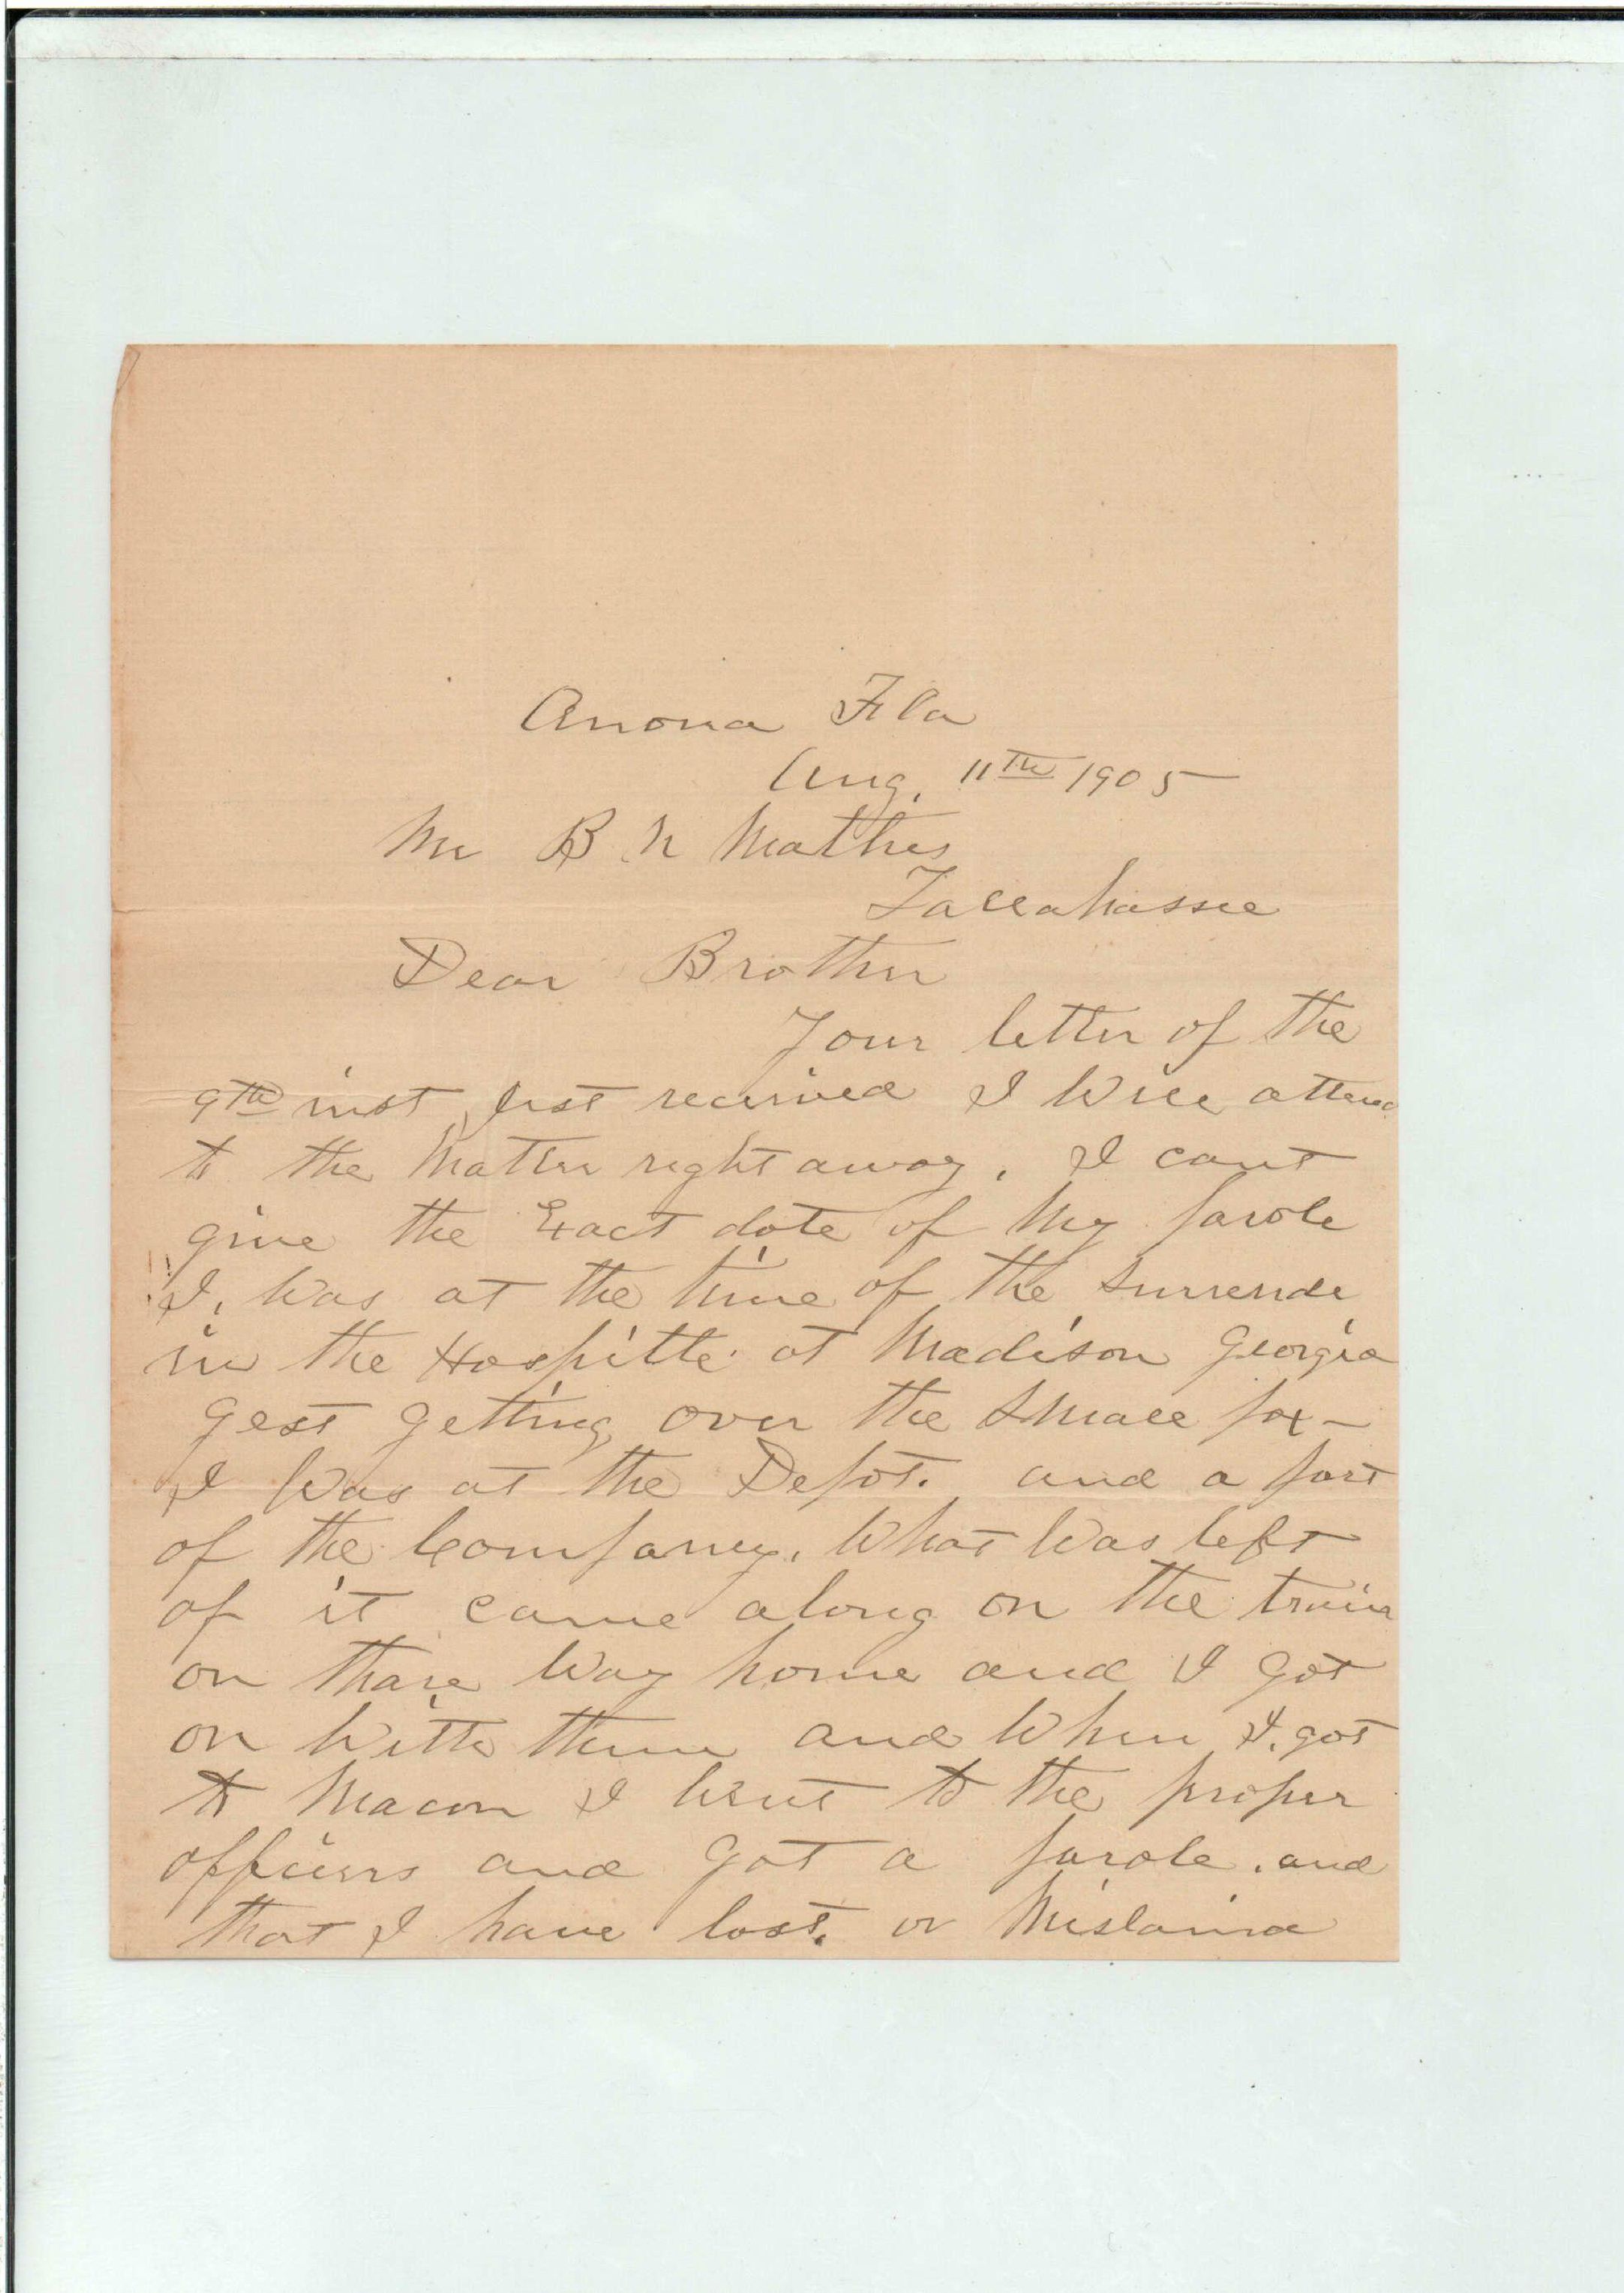 Anona Fla
Aug. 11th 1905
Mr B N Mathes
Tallahassee
Dear Brother
Your letter of the
9th inst, just received I Will attend
to the Matter right away. I cant
give the Exact date of My parole
I, Was at the time of the Surrende
in the Hospitle at Madison Georgia
gest getting over the Small pox -
I Was at the Depot. and a part
of the Company. What Was left
of it came along on the train
on thare Way home and I got
on With them and When I. got
to Macon I Went to the proper
officers and got a parole. and
that I have lost. or Mislaind